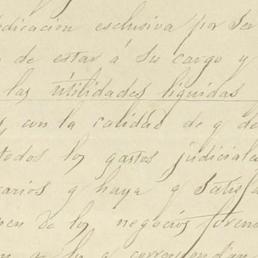 dicación exclusiva por ser
de estar á su cargo y
las utilidades liquidas
, con la calidad de q de
todos los gastos judiciale
arios y haya q satisfa
nen de los negocios foren